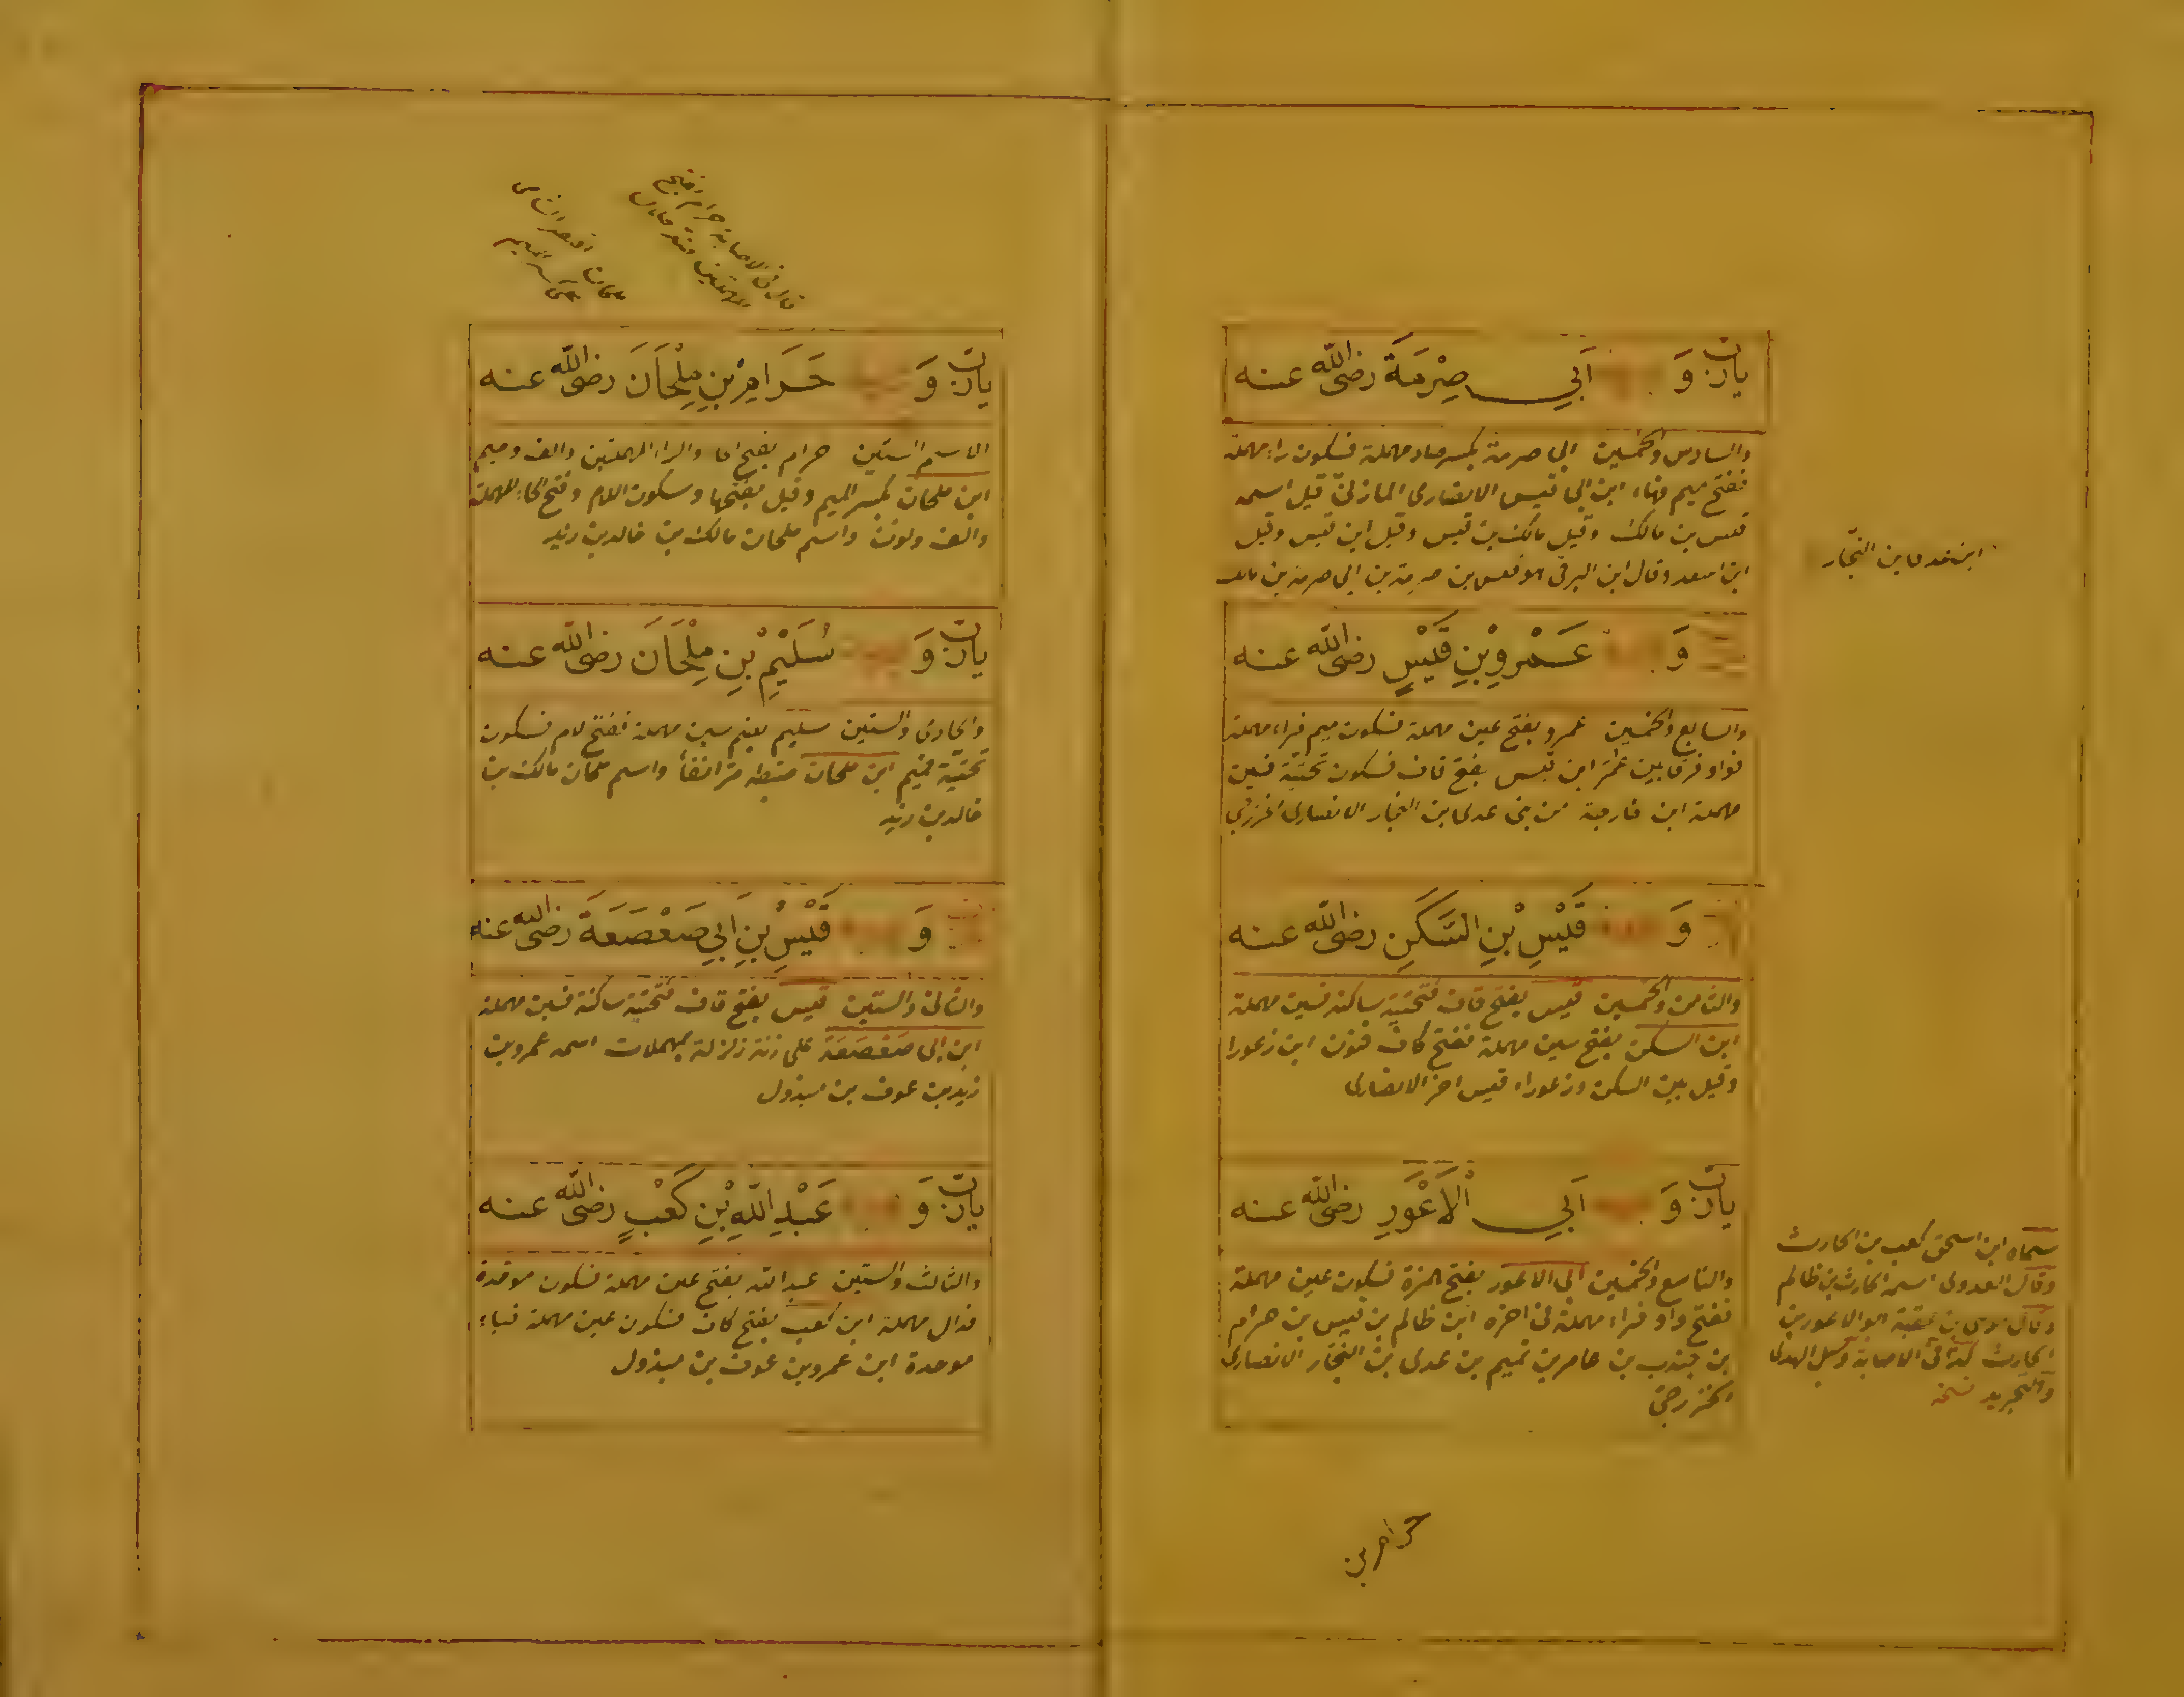 يارب وَ أَبِي صِرْمَةَ رضى الله عنه
والسادس والخمسين ابى صرمة بكسر صاد مهملة فسكون راء مهملة
ففتح ميم فهاء ابن ابى قيس الانصارى المازنى قيل اسمه
قيس بن مالك وقيل مالك بن قيس وقيل ابن قيس وقيل
ابن اسعد وقال ابن البرقى هو قيس بن صرمة بن ابى صرمة بن مالك
ابن عدى بن النجار
وَ عَمْرِو بْنِ قَيْسٍ رضى الله عنه
والسابع والخمسين عمرو بفتح عين مهملة فسكون ميم فراء مهملة
فواو فرقا بين عمر ابن قيس بفتح قاف فسكون تحتية فسين
مهملة ابن خارجة من بنى عدى بن النجار الانصارى الخزرجى
وَ قَيْسِ بْنِ السَّكَنِ رضى الله عنه
والثامن والخمسين قيس بفتح قاف فتحتية ساكنة فسين مهملة
ابن السكن بفتح سين مهملة ففتح كاف فنون ابن زعورا
وقيل بين السكن وزعوراء قيس اخر الانصارى
يارب وَ أَبِي الْأَعْوَرِ رضى الله عنه
والتاسع والخمسين ابى الاعور بفتح همزة فسكون عين مهملة
ففتح واو فراء مهملة فى اخره ابن ظالم بن قيس بن حرام
بن جندب بن عامر بن تميم بن عدى بن النجار الانصارى
الخزرجى
سماه ابن اسحق كعب بن الحارث
وقال العدوى اسمه الحارث بن ظالم
وقال موسى بن عقبة ابو الاعور بن
الحارث كذا فى الاصابة وسبل الهدى
والتجريد نسخه
حرام بن
قال فى الاصابة حرام بفتح
المهملتين
يارب وَ حَرَامِ بْنِ مِلْحَانَ رضى الله عنه
الاسم الستين حرام بفتح الحا والراء المهملتين والف وميم
ابن ملحان بكسر الميم وقيل بفتحها وسكون اللام وفتح الحاء المهملة
والف ونون واسم ملحان مالك بن خالد بن زيد
يارب وَ سُلَيْمِ بْنِ مِلْحَانَ رضى الله عنه
والحادى والستين سليم بضم سين مهملة ففتح لام فسكون
تحتية فميم ابن ملحان ضبطه مر انفا واسم ملحان مالك بن
خالد بن زيد
وَ قَيْسِ بْنِ أَبِي صَعْصَعَةَ رضى الله عنه
والثانى والستين قيس بفتح قاف فتحتية ساكنة فسين مهملة
ابن ابى صَعْصَعَة على زنة زلزلة بمهملات اسمه عمرو بن
زيد بن عوف بن مبذول
يارب وَ عَبْدِ اللهِ بْنِ كَعْبٍ رضى الله عنه
والثالث والستين عبد الله بفتح عين مهملة فسكون موحدة
فدال مهملة ابن كعب بفتح كاف فسكون عين مهملة فباء
موحدة ابن عمرو بن عوف بن مبذول